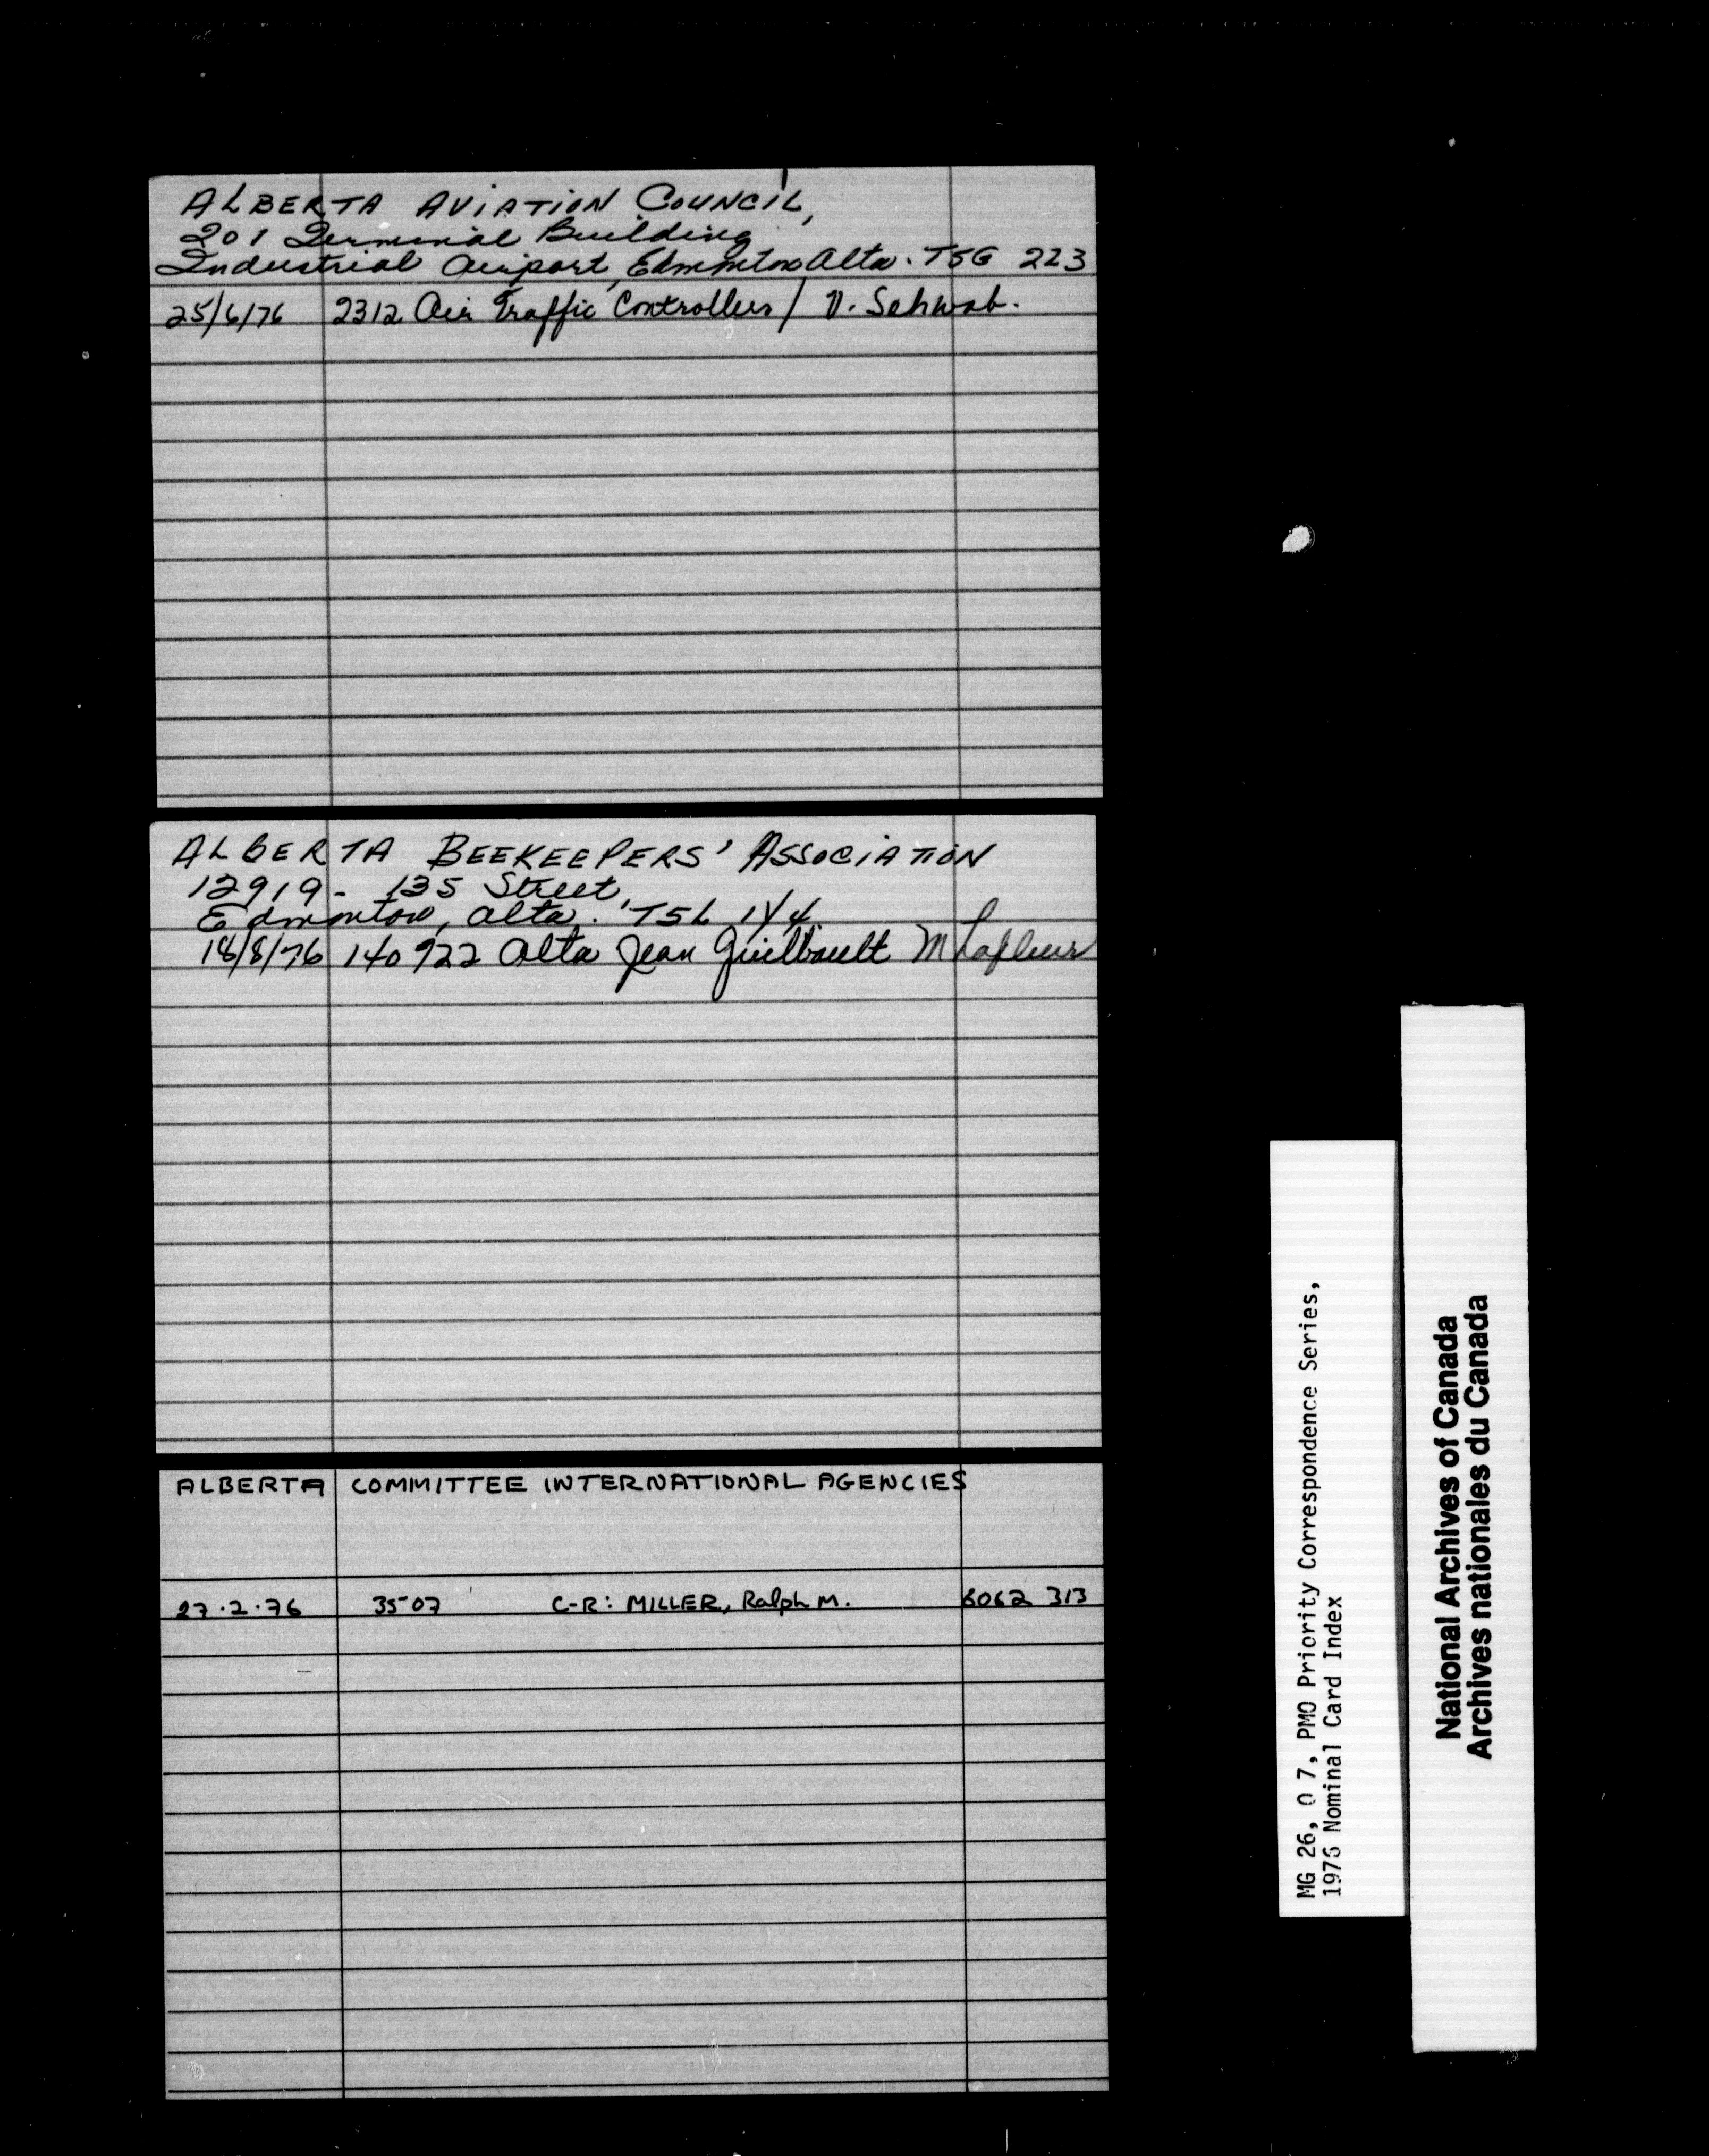 ALBERTA AVIATION COUNCIL,
201 Terminal Building
Industrial Airport, Edmonton Alta. T5G 2Z3
25/6/76 2312 Air Traffic Controllers / V. Schwab.
ALBERTA BEEKEEPERS' ASSOCIATION
12919 - 135 Street,
Edmonton, Alta. T5L 1Y4
18/8/76 140 922 Alta Jean Guilbault M Lafleur
ALBERTA COMMITTEE INTERNATIONAL AGENCIES
27.2.76 3507 C-R: MILLER, Ralph M. 6062 313
MG 26, O 7, PMO Priority Correspondence Series,
1976 Nominal Card Index
National Archives of Canada
Archives nationales du Canada